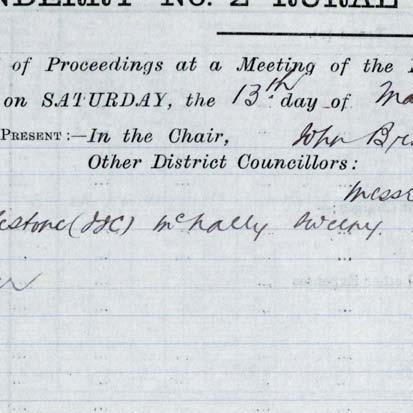 NDERRY No. 2 RURAL
of Proceedings at a Meeting of the
on SATURDAY, the 13th day of Ma
PRESENT:—In the Chair, John Bre
Other District Councillors:
Messr
estone (JJC) McNally Sweeny.